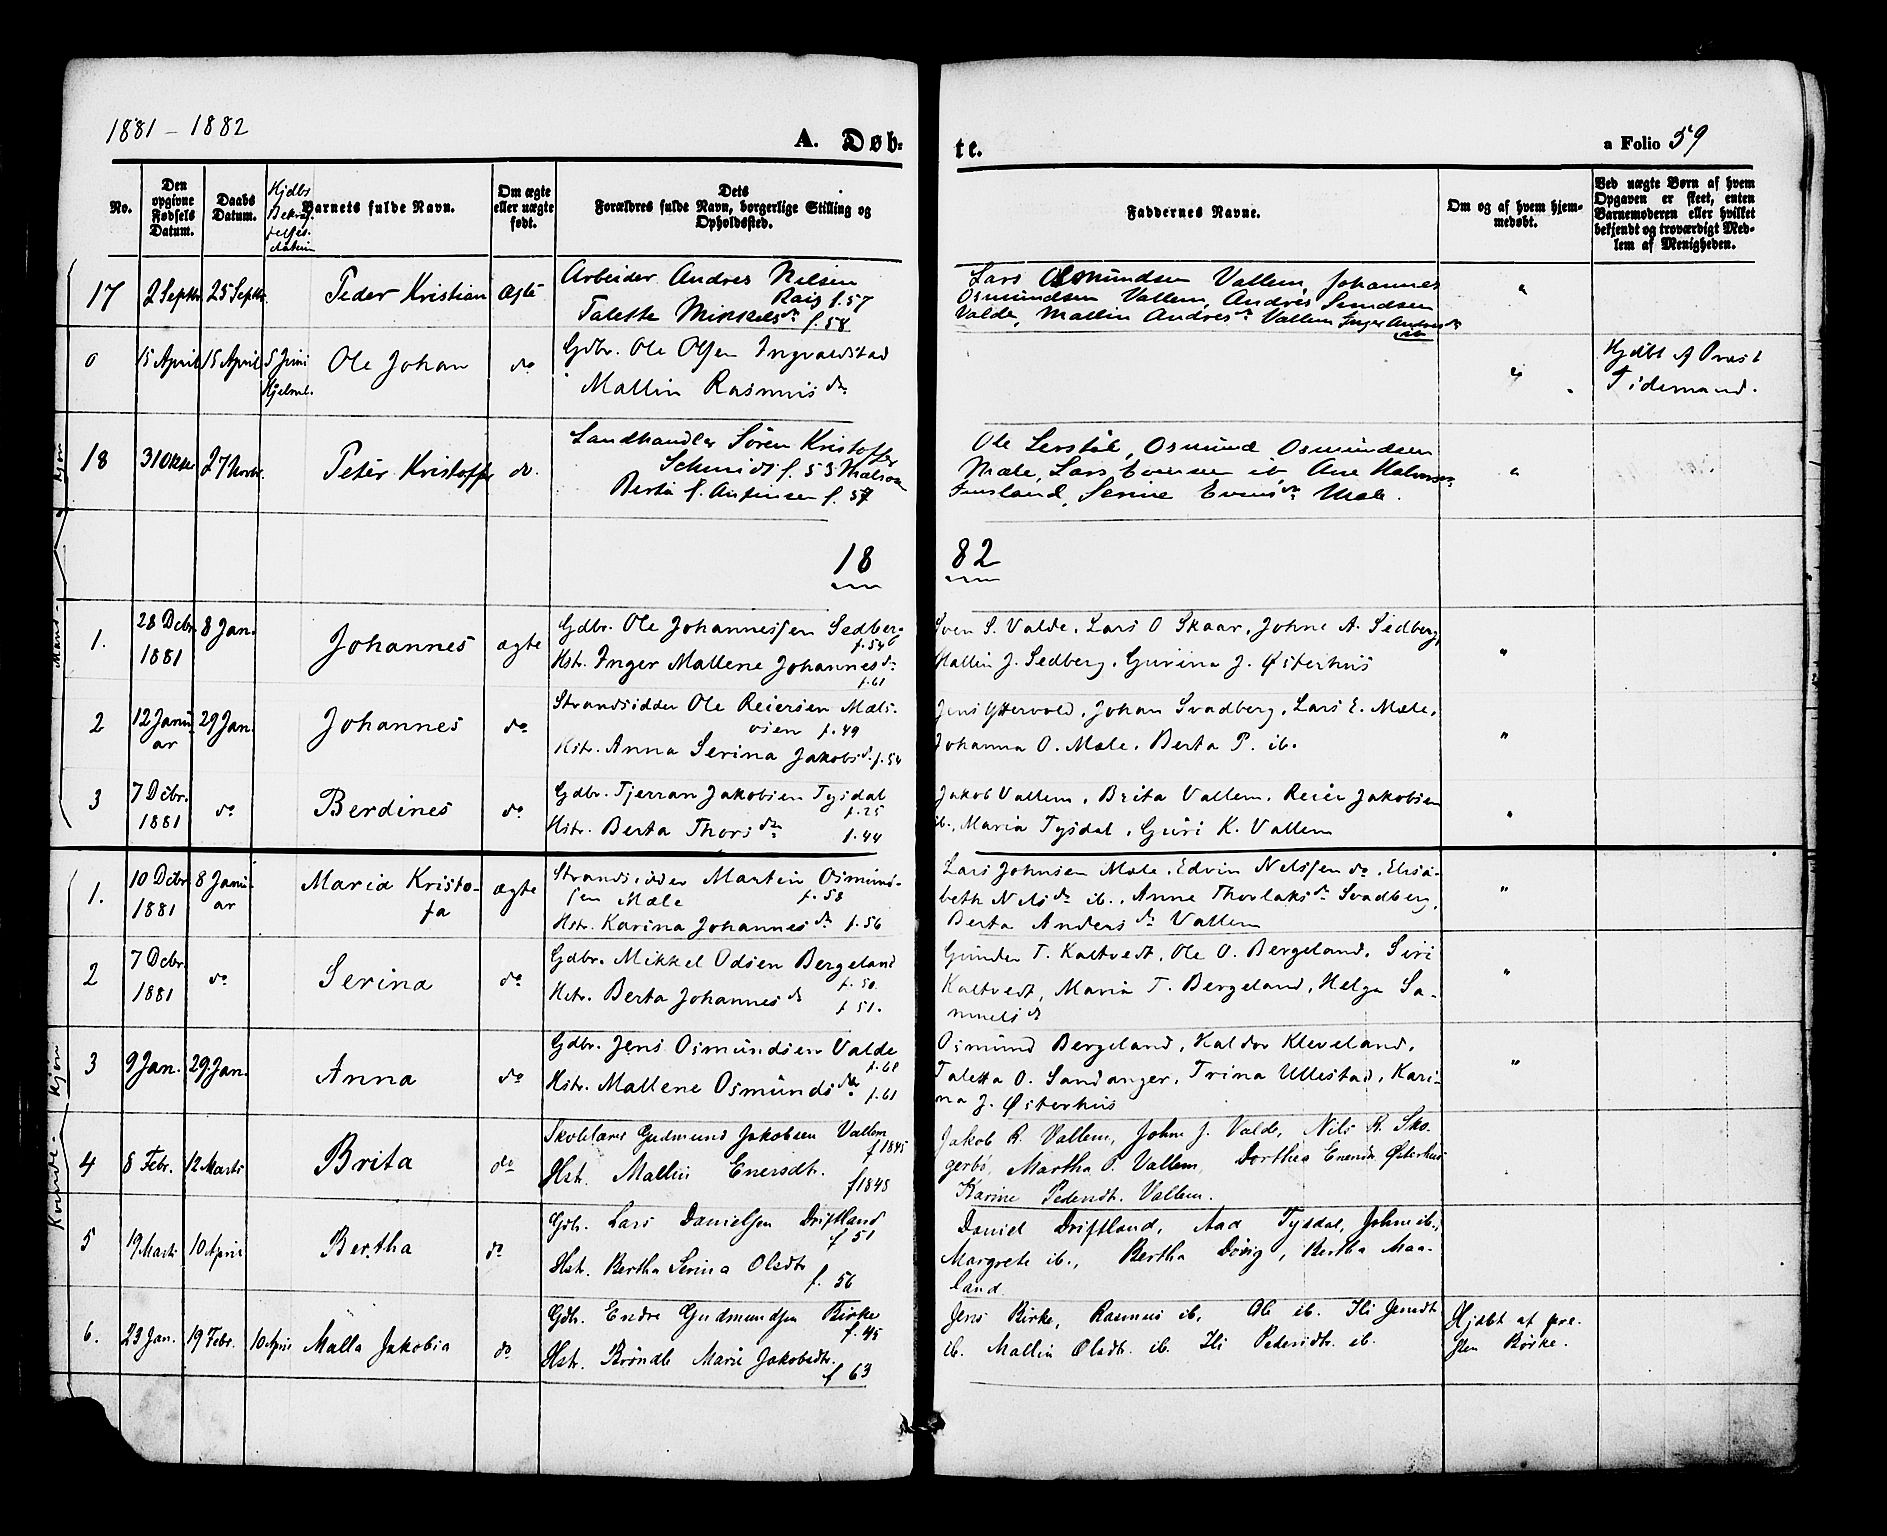 1881 - 1882
A. Døb-
te.
a Folio 59
No.
Den opgivne Fødsels Datum.
Daabs Datum.
Hjdbs Bekræftelses datum
Barnets fulde Navn.
Om ægte eller uægte født.
Dets Forældres fulde Navn, borgerlige Stilling og Opholdssted.
Faddernes Navne.
Om og af hvem hjemmedøbt.
Ved uægte Børn af hvem Opgaven er skeet, enten Barnemoderen eller hvilket bekjendt og troværdigt Medlem af Menigheden.
Mand- kjøn
17 2 Septbr 25 Septbr. Peder Kristian ægte
Arbeider Andres Nelsen
Raig f. 57
Talette Mikkelsdr f. 58
Lars Osmundsen Vallem, Johannes
Osmundsen Vallem, Andres Sundsen
Valde, Mallin Andresdr Vallem Inger Andresdr
ib
0 15 April 15 April 5 Juni Hjelmel. Ole Johan do
Gdbr. Ole Olsen Ingvaldstad
Mallin Rasmusdr
Hjdbt af Provst
Tidemand.
18 31 Oktbr 27 Novbr. Peter Kristoffer do.
Landhandler Søren Kristoffer
Schmidt f. 53 Mælsosen
Berta f. Anfinsen f. 57
Ole Servold, Osmund Osmundsen
Mæle, Lars Evensen ib, Ane Halvorsen
Fensland, Serine Evensdr Mæle.
18 82
1. 28 Debr 1881 8 Jan. Johannes ægte
Gdbr. Ole Johannessen Sedberg
f. 54
Hst. Inger Mallene Johannesdr
f. 61
Sven S. Valde, Lars O Skaar, Johne A. Sedberg,
Mallin J. Sedberg, Gurina J. Østerhus
2 12 Januar 29 Jan. Johannes do
Strandsidder Ole Reiersen Mæls-
osen f. 49
Hstr. Anna Serina Jakobsd. f. 54
Jens Yttervold, Johan Svadberg, Lars E. Mæle,
Johanna O. Mæle, Berta P. ib.
3 7 Debr. 1881 do Berdines do
Gdbr. Tjerran Jakobsen Tysdal
f. 25
Hstr. Berta Thorsdr f. 44
Jakob Vallem, Brita Vallem, Reier Jakobsen
ib., Maria Tysdal, Guri K. Vallem
Kvinde- kjøn
1. 10 Debr 1881 8 Januar Maria Kristofa ægte
Strandsidder Martin Osmund-
sen Mæle f. 58
Hstr. Karina Johannesdr f. 56
Lars Johnsen Mæle, Edvin Nelssen do, Elisa-
beth Nelsdr ib., Anne Thorlaksdr Svadberg,
Berta Andersdr Vallem
2 7 Debr. 1881 do Serina do
Gdbr. Mikkel Odsen Bergeland
f. 50
Hstr. Berta Johannesd
f 51.
Gunder T. Kaltvedt, Ole O. Bergeland, Siri
Kaltvedt, Maria T. Bergeland, Helga Sa-
muelsd
3 9 Jan. 29 Jan. Anna do
Gdbr. Jens Osmundsen Valde
f. 60
Hstr. Mallene Osmundsdtr f. 61
Osmund Bergeland, Haldor Kleveland,
Taletta O. Sandanger, Trina Ullestad, Kari-
na J. Østerhus
4 8 Febr. 12 Marts Brita do
Skolelærer Gudmund Jakobsen Vallem
f 1845
Hst. Mallin Enersdtr.
f 1848
Jakob R. Vallem, Johne J. Valde, Nils R. Sko-
gerbø, Martha P. Vallem, Dorthea Enersdr Østerhus
Karine Pedersdt. Vallem.
5 19 Marts 10 April Bertha do
Gdbr. Lars Danielsen Driftland
f 51
Hst. Bertha Serina Olsdtr
f. 56
Daniel Driftland, Aad Tysdal, Johne ib.,
Margrete ib., Bertha Døvig, Bertha Maa-
land
6. 23 Jan. 19 Febr. 10 April Malla Jakobia do
Gdbr. Endre Gudmundsen Birke
f. 45
Hst. Brønde Marie Jakobsdtr.
f 63
Jens Birke, Rasmus ib, Ole ib. Ili Jensdt
ib. Mallin Olsdtr. ib. Ili Pedersdtr. ib.
Hjdbt af pre-
sten Børke.